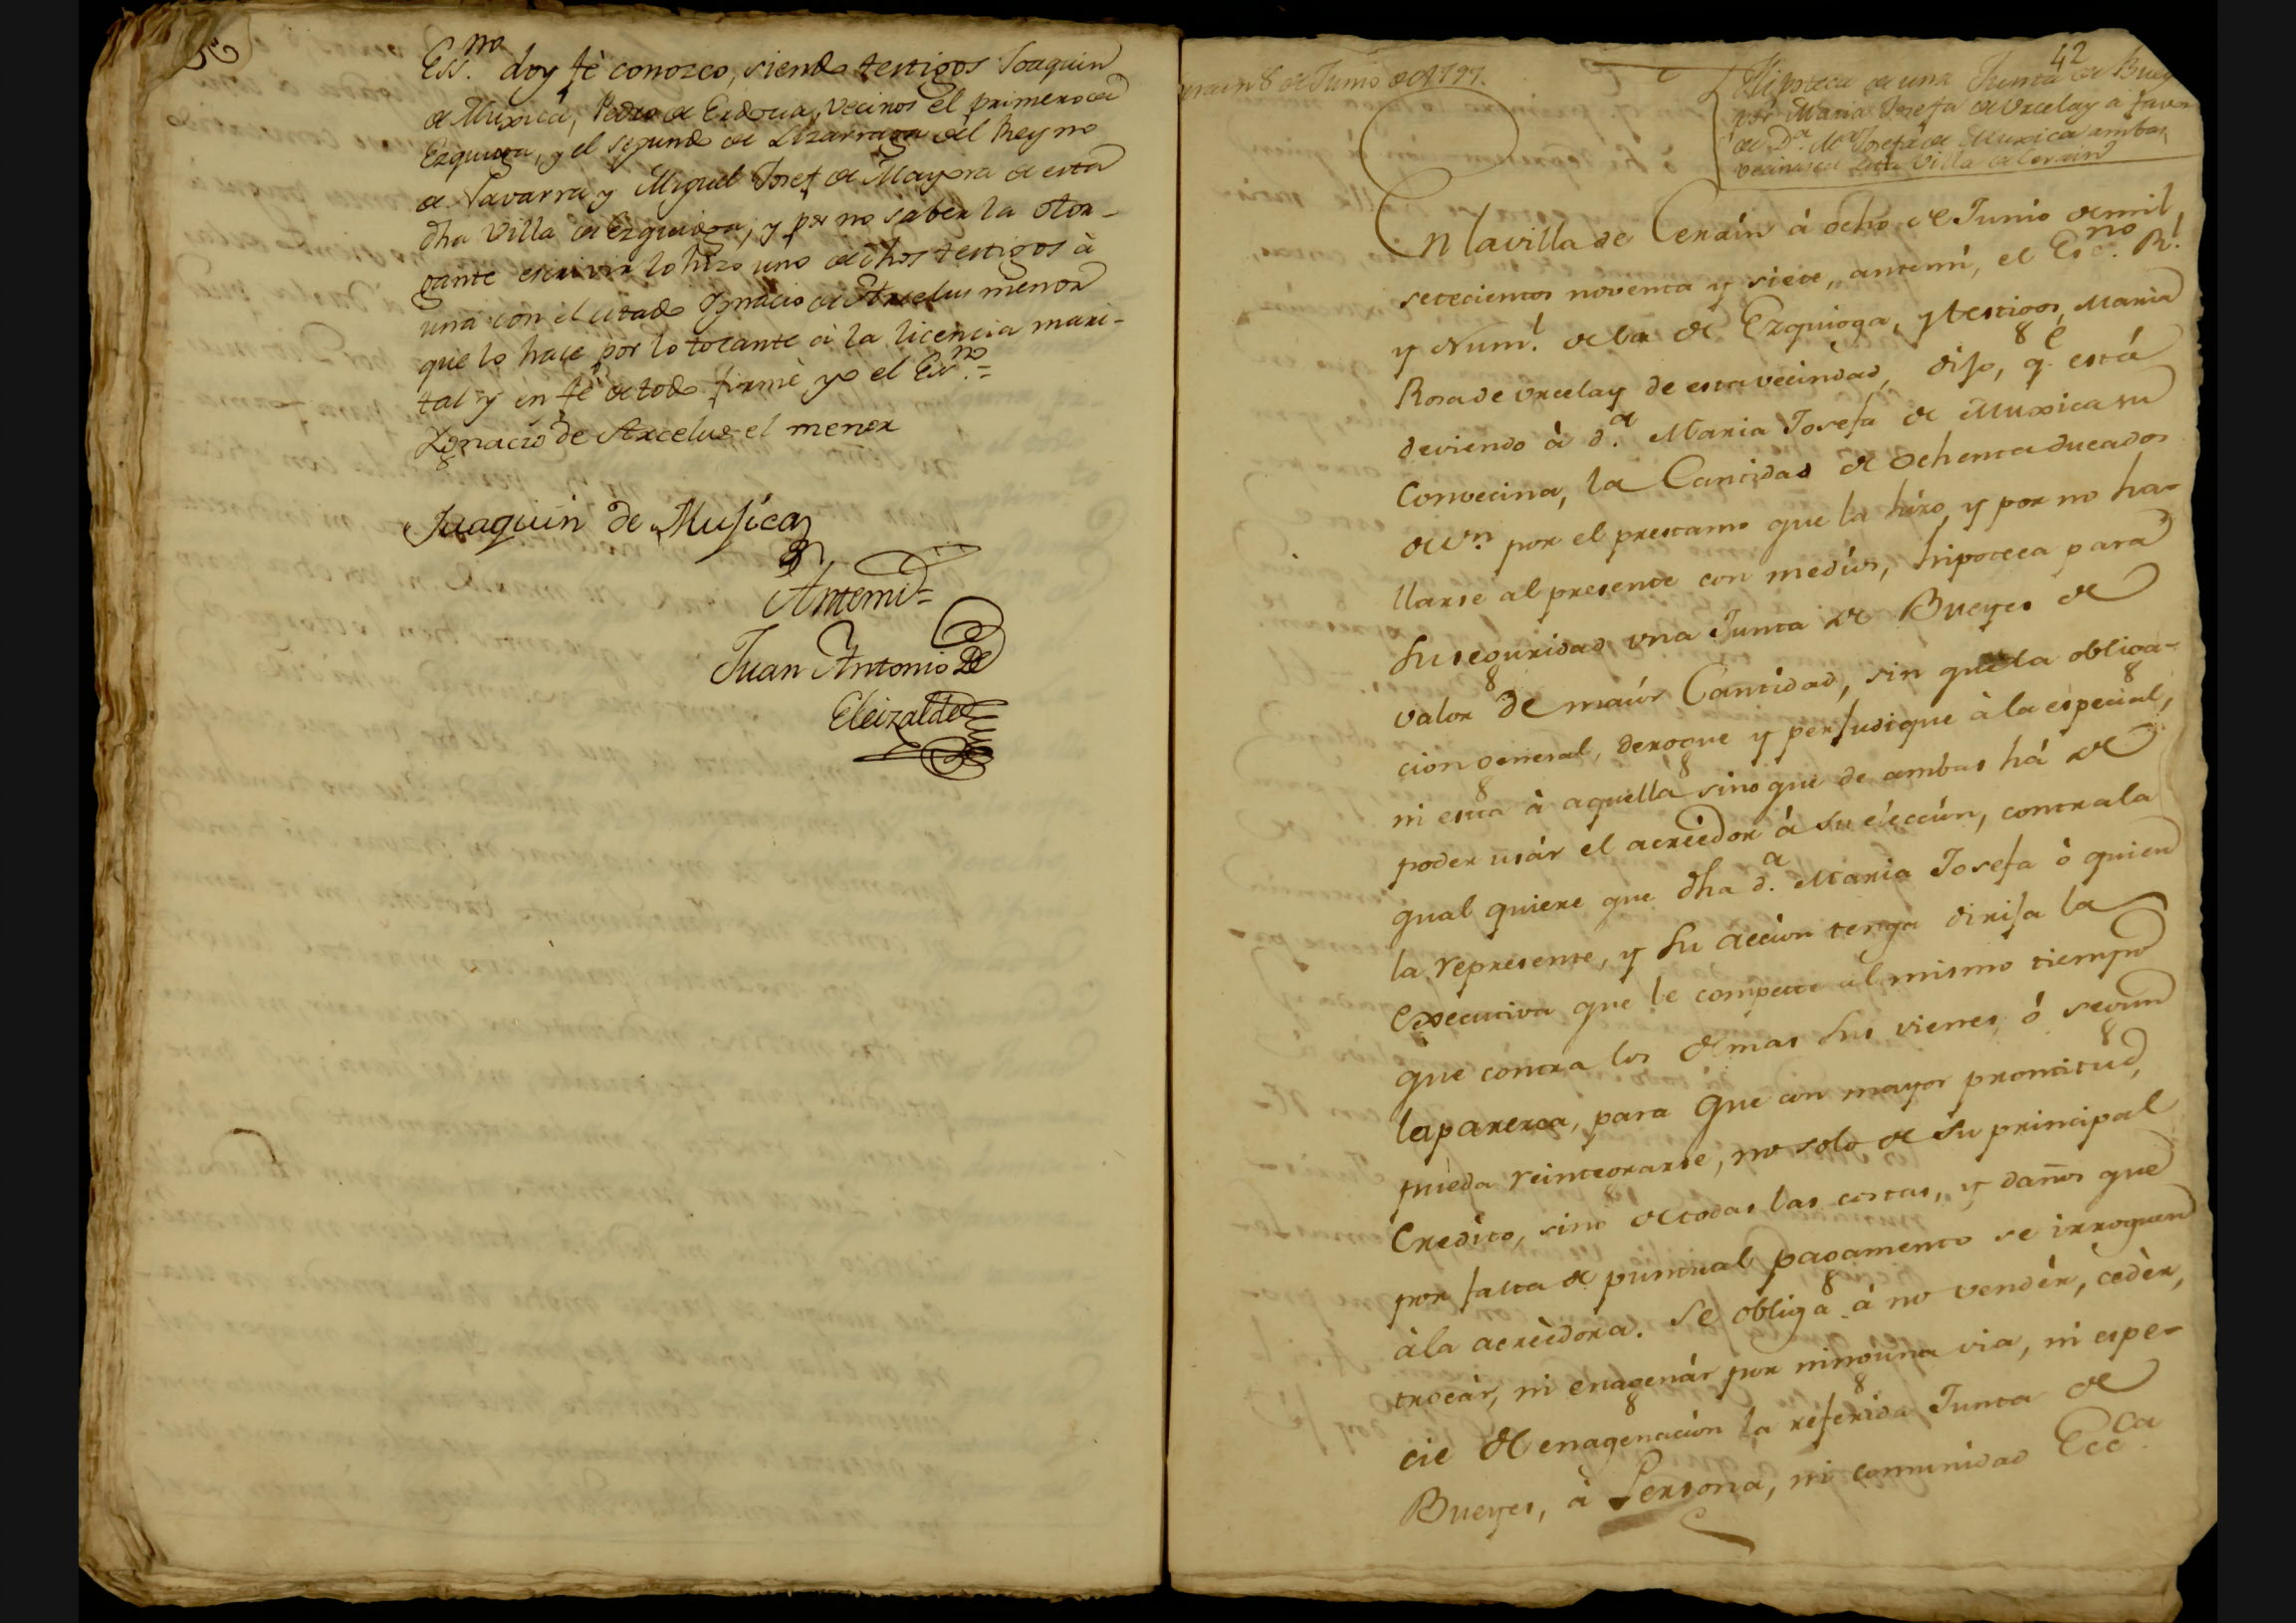 Ess.no doy fè conozco, siendo testigos Joaquin
de Muxica, Pedro de Eidocua, vecinos el primero de
Ezquioga, y el segundo de Lizarraga del Reyno
de Navarra y Miguel Josef de Mayora de esta
dha Villa de Ezquioga, y por no saber la otor-
gante escrivir lo hizo uno de dhos testigos à
una con el citado Ygnacio de Arcelus menor
que lo hace por lo tocante à la licencia mari-
tal y en fè de todo firmè yo el Ess.no =
Ygnacio de Arcelus el menor
Juaquin de Musica
Antemi =
Juan Antonio De
Eleizalde
42
rain 8 de Junio de 1797.
Hipoteca de una Junta de Buey
por Maria Josefa de Urcelay a favor
de D.a M.a Josefa de Muxica ambas
vecinas de esta Villa de Cerain
En la villa de Cerain á ocho de Junio de mil,
setecientos noventa y siete, antemi, el Es.no R.l
y Num.l de la de Ezquioga, y testigos, Maria
Rosa de Urcelay de esta vecindad, dijo, q.e está
deviendo à d.a Maria Josefa de Muxica su
Convecina, la Cantidad de ochenta ducados
de v.n por el prestamo que la hizo, y por no ha-
llarse al presente con medios, hipoteca para
su seguridad una Junta de Bueyes de
valor de maior Cantidad, sin que la obliga-
cion general, derogue y perjudique à la especial,
ni esta à aquella sino que de ambas há de
poder usár el acreedor á su elección, contra la
qual quiere que dha d.a Maria Josefa ò quien
la represente, y su acción tenga dirija la
executiva que le compete al mismo tiempo
que contra los demas sus vienes, ó segun
le parezca, para que con mayor prontitud,
pueda reintegrarse, no solo de su principal
Credito, sino de todas las costas, y daños que
por falta de puntual pagamento se irroguen
à la acreèdora. Se obliga á no vendèr, cedèr,
trocár, ni enagenár por ninguna via, ni espe-
cie de enagenación la referida Junta de
Bueyes, à Persona, ni comunidad Ecc.ca